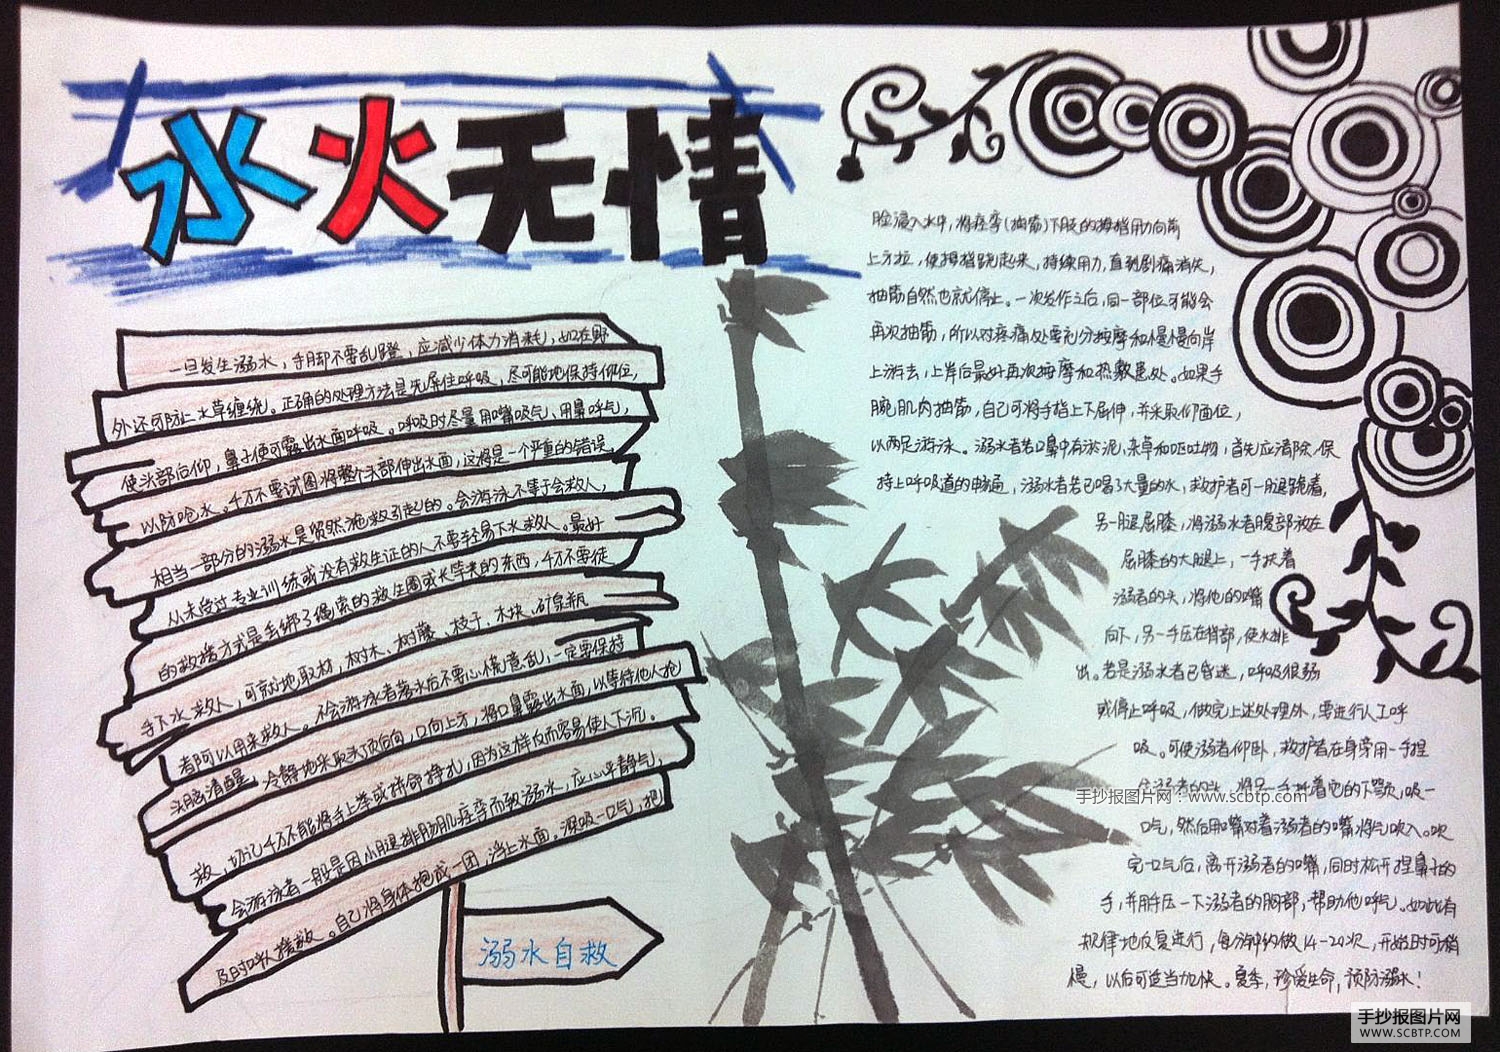 水火无情
一旦发生溺水，手脚不要乱蹬，应减少体力消耗，如在野
外还可防止水草缠绕。正确的处理方法是先屏住呼吸，尽可能地保持仰位，
使头部后仰，鼻子便可露出水面呼吸。呼吸时尽量用嘴吸气、用鼻呼气，
以防呛水。千万不要试图将整个头部伸出水面，这将是一个严重的错误，
相当一部分的溺水是贸然施救引起的。会游泳不等于会救人，
从未经过专业训练或没有救生证的人不要轻易下水救人。最好
的救援方式是丢绑了绳索的救生圈或长竿类的东西，千万不要徒
手下水救人，可就地取材，树木、树藤、枝子、木块、矿泉瓶
者阿以用来救人。不会游泳者落水后不要心慌意乱，一定要保持
头脑清醒，冷静地采取头顶向后，口向上方，将口鼻露出水面，以等待他人抢
救，切记千万不能将手上举或拼命挣扎，因为这样反而容易使人下沉。
会游泳者一般是因小腿排肠肌痉挛而致溺水，应心平静气，
及时呼人援救。自己将身体抱成一团，浮上水面。深吸一口气，把
溺水自救
脸浸入水中，将痉挛（抽筋）下肢的拇指用力向前
上方拉，使拇指跷起来，持续用力，直到剧痛消失，
抽筋自然也就停止。一次发作之后，同一部位可能会
再次抽筋，所以对疼痛处要充分按摩和慢慢向岸
上游去，上岸后最好再次按摩和热敷患处。如果手
腕肌肉抽筋，自己可将手指上下屈伸，并采取仰面位，
以两足游泳。溺水者若口鼻中有淤泥，杂草和呕吐物，首先应清除，保
持上呼吸道的畅通，溺水者若已喝了大量的水，救护者可一腿跪着，
另一腿屈膝，将溺水者腹部放在
屈膝的大腿上，一手扶着
溺者的头，将他的嘴
向下，另一手压在背部，使水排
出。若是溺水者已昏迷，呼吸很弱
或停止呼吸，做完上述处理外，要进行人工呼
吸。可使溺者仰卧，救护者在身旁用一手捏
手抄报图片网：www.scbtp.com
住溺者的 将另一手托着它的下颚，吸一
口气，然后用嘴对着溺者的嘴将气吹入。吹
完一口气后，离开溺者的嘴，同时松开捏鼻子的
手，并用手压一下溺者的胸部，帮助他呼气。如此有
规律地反复进行，每分钟约做14-20次，开始时可稍
慢，以后可适当加快。夏季，珍爱生命，预防溺水！
手抄报图片网
WWW.SCBTP.COM